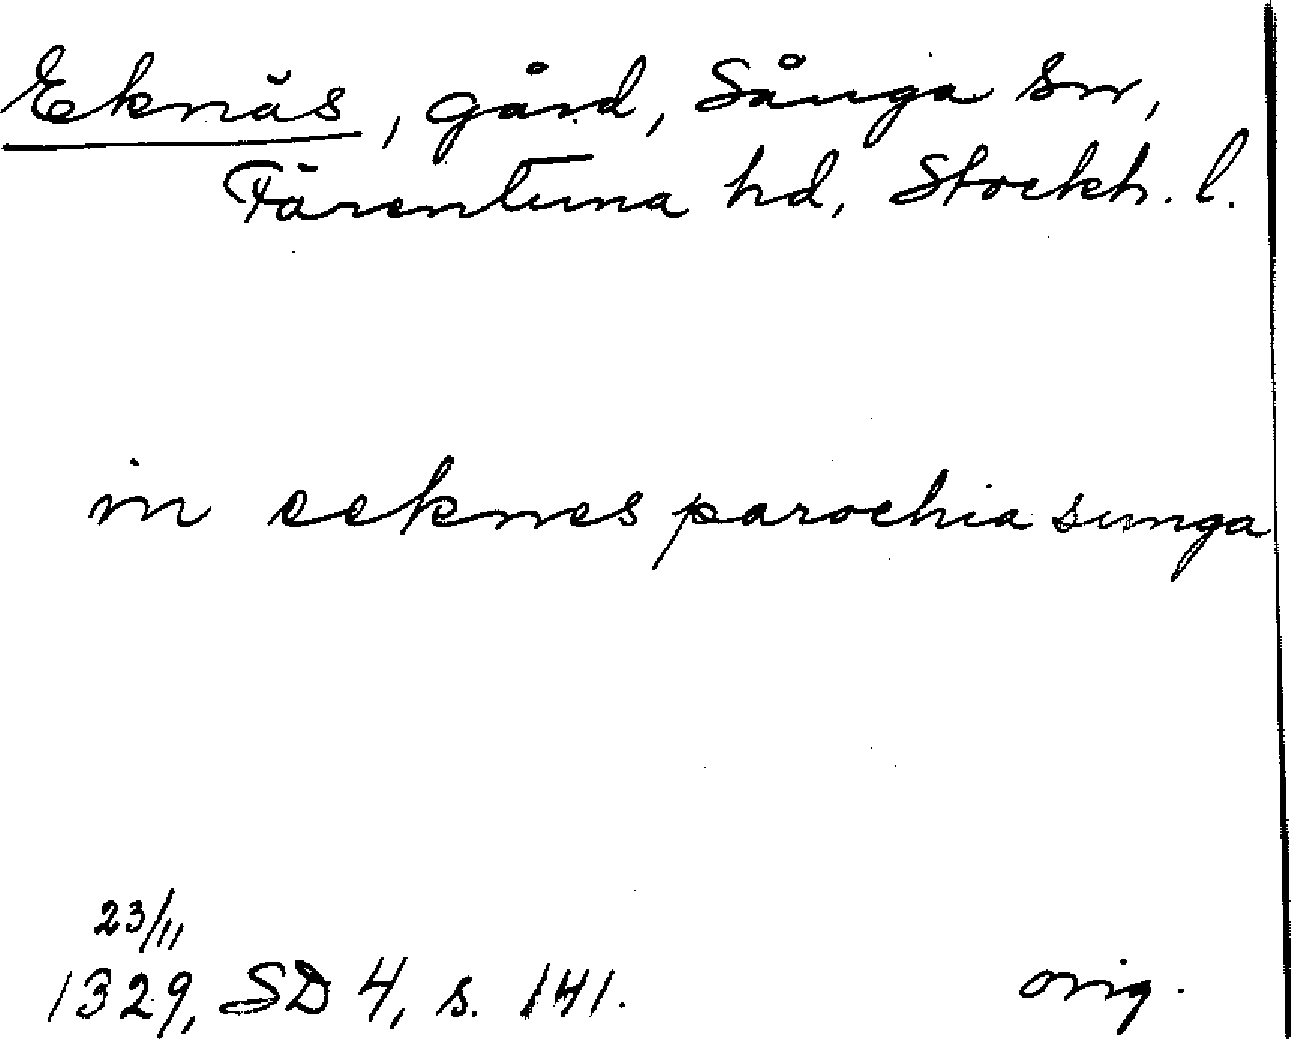 Eknäs, gård, Sånga sn,
Färentuna hd, Stockh. l.
in eeknes parochia sunga
23/11
1329, SD 4, s. 141.
orig.